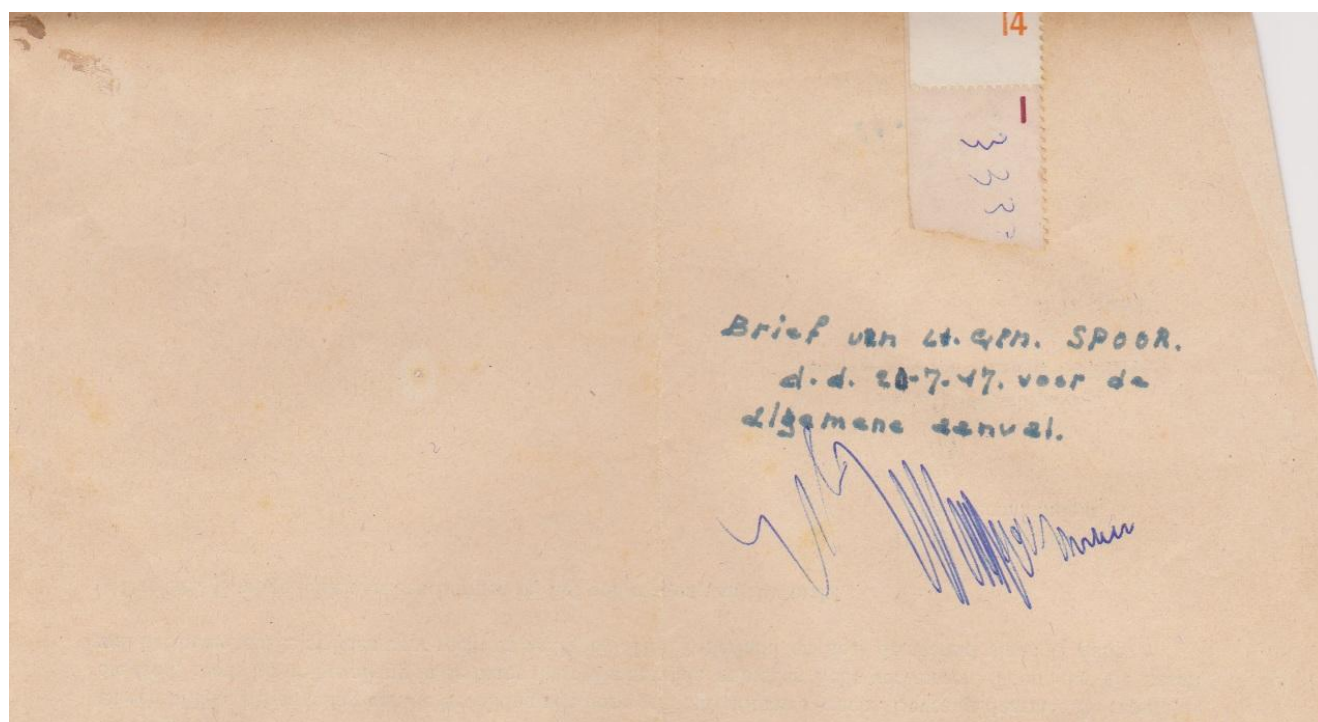 14
1
3 3 3
Brief van Lt. Gen. SPOOR.
d.d. 20-7-47. voor de
algemene aanval.